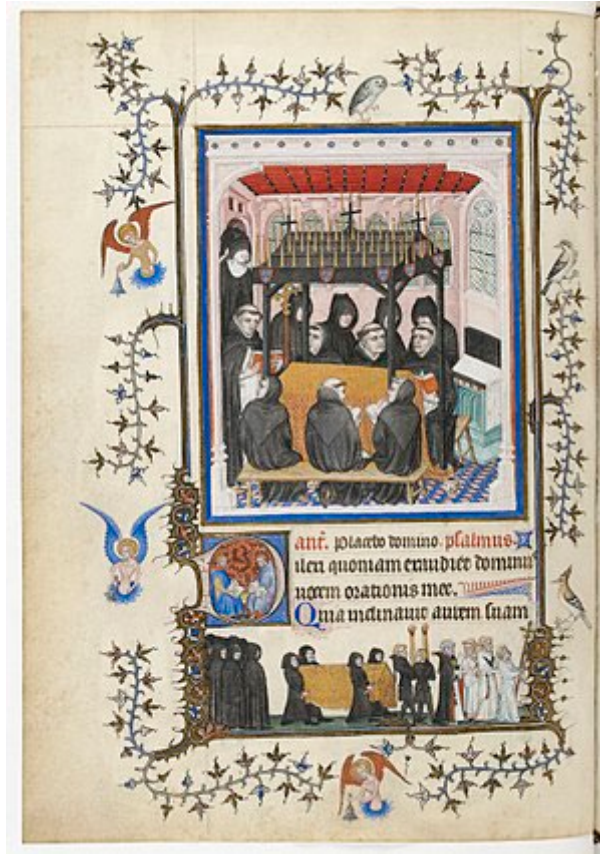 ant. Placebo domino. psalmus
Dilexi quoniam exaudiet dominus
vocem orationis mee.
Quia inclinavit aurem suam